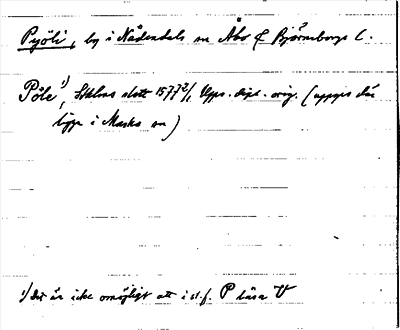 Pyöli, by i Nådendals sn Åbo & Björneborgs l.
Pöle ¹), Sthlms slott 1577 2/1 Upps. dipl. orig. (uppges där
ligga i Masko sn)
¹) Det är icke omöjligt att i st. f. P läsa V